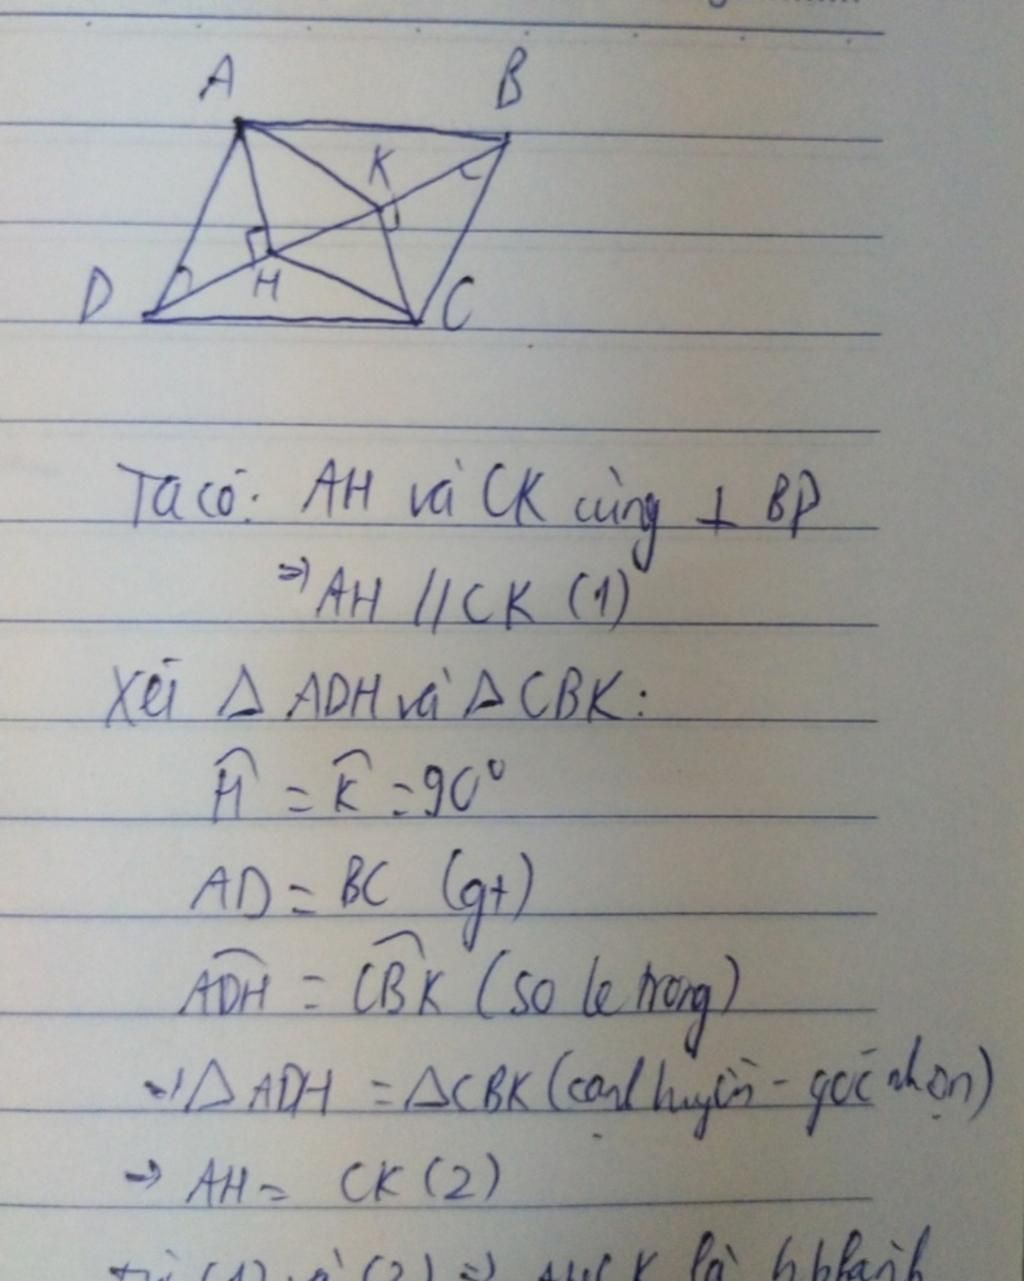 A
B
K
D
H
C
Ta có: AH và CK cùng ⊥ BD
⇒ AH // CK (1)
Xét Δ ADH và Δ CBK:
Ĥ = K̂ = 90°
AD = BC (gt)
ADH = CBK (so le trong)
⇒ Δ ADH = Δ CBK (cạnh huyền - góc nhọn)
⇒ AH = CK (2)
từ (1) và (2) ⇒ AHCK là hbhành